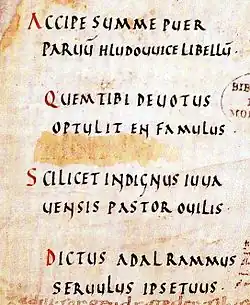 ACCIPE SUMME PUER
PARUŪ HLUDOUUICE LIBELLŪ·
QUEM TIBI DEUOTUS
OPTULIT EN FAMULUS·
SCILICET INDIGNUS IUUA
UENSIS PASTOR OUILIS·
DICTUS ADALRAMMUS
SERUULUS IPSE TUUS·
BIB
MO